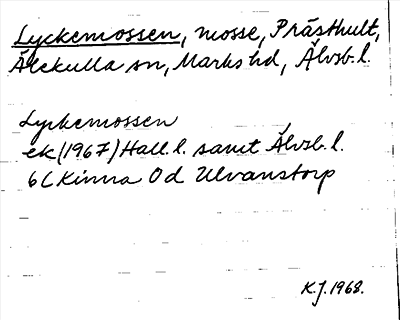 Lyckemossen, mosse, Prästhult,
Älekulla sn, Marks hd, Älvsb. l.
Lyckemossen
ek (1967) Hall. l. samt Älvsb. l.
6C Kinna Od Ulvanstorp
K.J. 1968.